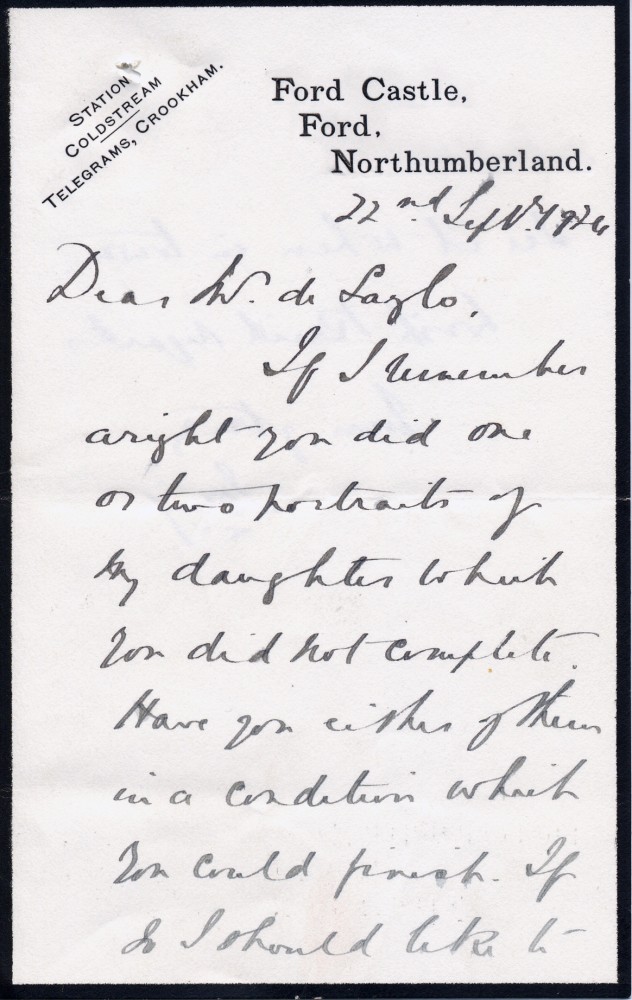 STATION
COLDSTREAM
TELEGRAMS, CROOKHAM.
Ford Castle,
Ford,
Northumberland.
22nd Sept. 1926
Dear Mr. de Laszlo,
If I remember
aright you did one
or two portraits of
my daughter which
you did not complete.
Have you either of them
in a condition which
you could finish. If
so I should like to